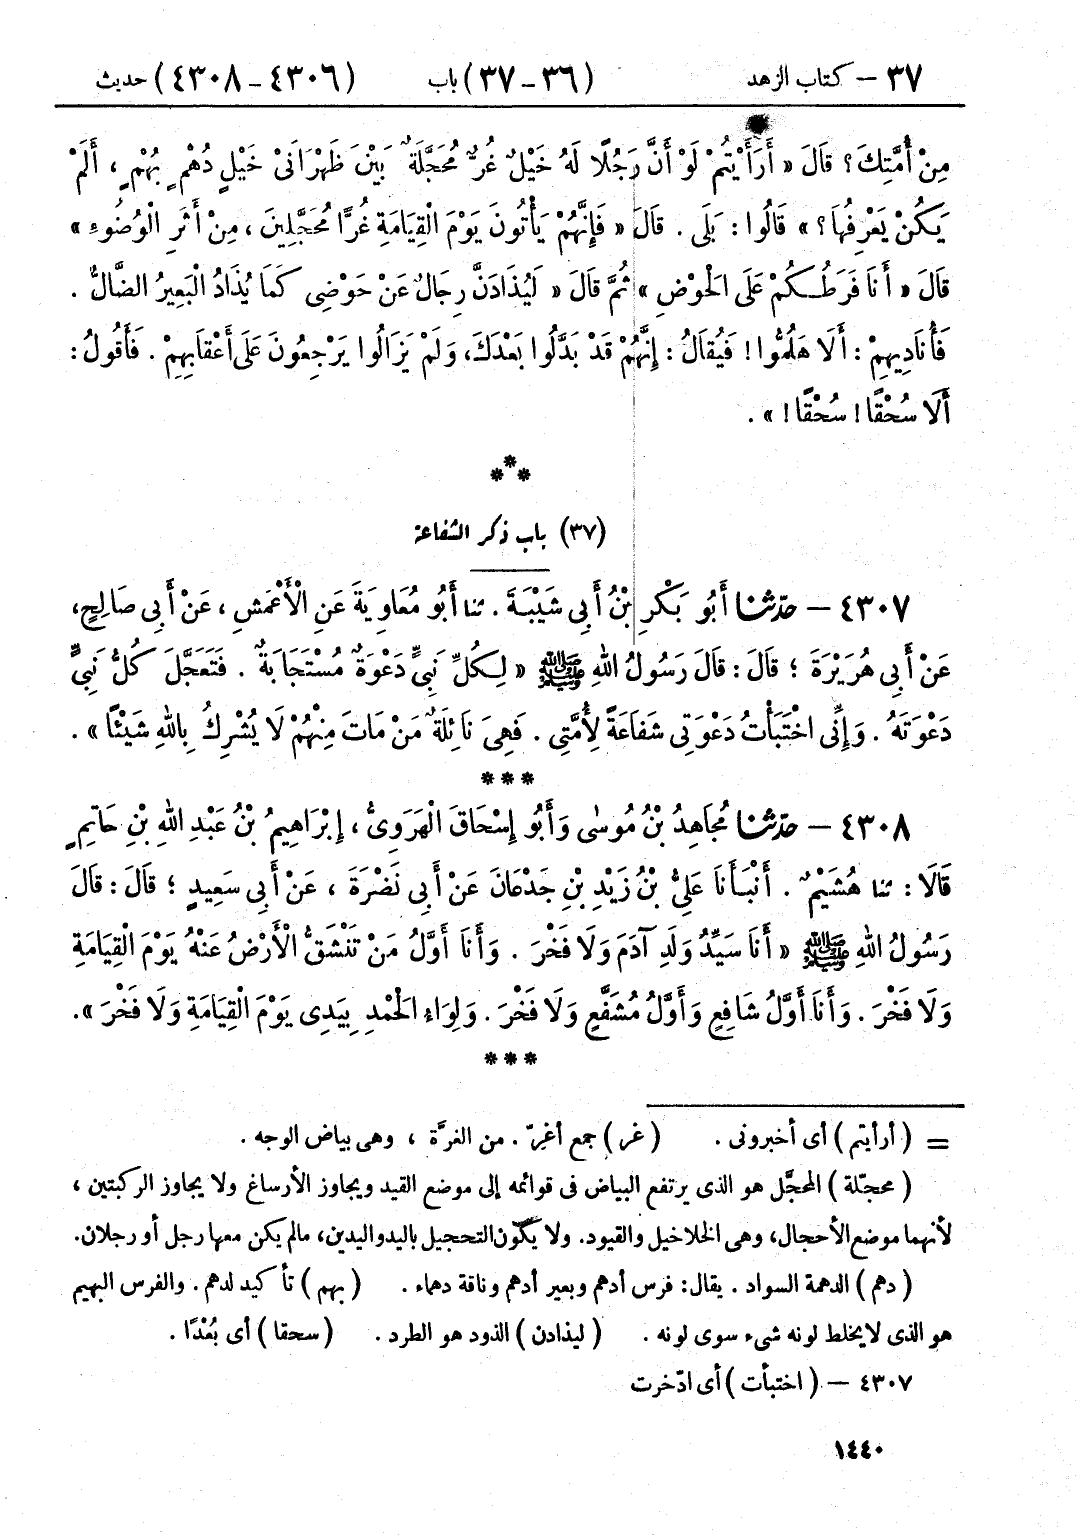 ٣٧ – كتاب الزهد (٣٦ – ٣٧) باب (٤٣٠٦ – ٤٣٠٨) حديث
مِنْ أُمَّتِكَ؟ قَالَ « أَرَأَيْتُمْ لَوْ أَنَّ رَجُلًا لَهُ خَيْلٌ غُرٌّ مُحَجَّلَةٌ بَيْنَ ظَهْرَانَىْ خَيْلٍ دُهْمٍ بُهْمٍ ، أَلَمْ
يَكُنْ يَعْرِفُهَا؟ » قَالُوا : بَلَى . قَالَ « فَإِنَّهُمْ يَأْتُونَ يَوْمَ الْقِيَامَةِ غُرًّا مُحَجَّلِينَ ، مِنْ أَثَرِ الْوُضُوءِ »
قَالَ « أَنَا فَرَطُكُمْ عَلَى الْحَوْضِ » ثُمَّ قَالَ « لَيُذَادَنَّ رِجَالٌ عَنْ حَوْضِى كَمَا يُذَادُ الْبَعِيرُ الضَّالُّ .
فَأُنَادِيهِمْ : أَلَا هَلُمُّوا ! فَيُقَالُ : إِنَّهُمْ قَدْ بَدَّلُوا بَعْدَكَ، وَلَمْ يَزَالُوا يَرْجِعُونَ عَلَى أَعْقَابِهِمْ . فَأَقُولُ :
أَلَا سُحْقًا ! سُحْقًا ! » .
***
(٣٧) باب ذكر الشفاعة
٤٣٠٧ – حدّثنا أَبُو بَكْرِ بْنُ أَبِى شَيْبَةَ . ثنا أَبُو مُعَاوِيَةَ عَنِ الْأَعْمَشِ ، عَنْ أَبِى صَالِحٍ،
عَنْ أَبِى هُرَيْرَةَ ؛ قَالَ : قَالَ رَسُولُ اللهِ ﷺ « لِكُلِّ نَبِىٍّ دَعْوَةٌ مُسْتَجَابَةٌ . فَتَعَجَّلَ كُلُّ نَبِىٍّ
دَعْوَتَهُ . وَإِنِّى اخْتَبَأْتُ دَعْوَتِى شَفَاعَةً لِأُمَّتِى . فَهِىَ نَائِلَةٌ مَنْ مَاتَ مِنْهُمْ لَا يُشْرِكُ بِاللهِ شَيْئًا » .
***
٤٣٠٨ – حدّثنا مُجَاهِدُ بْنُ مُوسَى وَأَبُو إِسْحَاقَ الْهَرَوِىُّ ، إِبْرَاهِيمُ بْنُ عَبْدِ اللهِ بْنِ حَاتِمٍ
قَالَا : ثنا هُشَيْمٌ . أَنْبَأَنَا عَلِىُّ بْنُ زَيْدِ بْنِ جَدْعَانَ عَنْ أَبِى نَضْرَةَ ، عَنْ أَبِى سَعِيدٍ ؛ قَالَ : قَالَ
رَسُولُ اللهِ ﷺ « أَنَا سَيِّدُ وَلَدِ آدَمَ وَلَا فَخْرَ . وَأَنَا أَوَّلُ مَنْ تَنْشَقُّ الْأَرْضُ عَنْهُ يَوْمَ الْقِيَامَةِ
وَلَا فَخْرَ . وَأَنَا أَوَّلُ شَافِعٍ وَأَوَّلُ مُشَفَّعٍ وَلَا فَخْرَ . وَلِوَاءُ الْحَمْدِ بِيَدِى يَوْمَ الْقِيَامَةِ وَلَا فَخْرَ ».
***
= ( أرأيتم ) أى أخبرونى . ( غر ) جمع أغرّ . من الغرّة ، وهى بياض الوجه .
( محجّلة ) المحجَّل هو الذى يرتفع البياض فى قوائمه إلى موضع القيد ويجاوز الأرساغ ولا يجاوز الركبتين ،
لأنهما موضع الأحجال، وهى الخلاخيل والقيود. ولا يكون التحجيل باليد واليدين، مالم يكن معها رجل أو رجلان.
( دهم ) الدهمة السواد . يقال: فرس أدهم وبعير أدهم وناقة دهماء . ( بهم ) تأكيد لدهم . والفرس البهيم
هو الذى لا يخلط لونه شىء سوى لونه . ( ليذادن ) الذود هو الطرد . ( سحقا ) أى بُعْدًا .
٤٣٠٧ – ( اختبأت ) أى ادّخرت
١٤٤٠